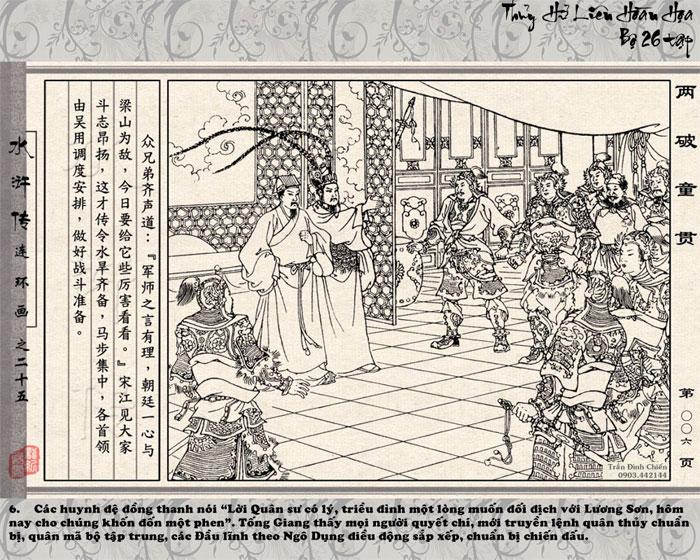 Thủy Hử Liên Hoàn Họa
Bộ 26 tập
水浒传连环画之二十五
两破童贯
众兄弟齐声道：『军师之言有理，朝廷一心与
梁山为敌，今日要给它些厉害看看。』宋江见大家
斗志昂扬，这才传令水旱齐备，马步集中，各首领
由吴用调度安排，做好战斗准备。
第〇〇六页
Trần Đình Chiến
0903.442144
6. Các huynh đệ đồng thanh nói “Lời Quân sư có lý, triều đình một lòng muốn đối địch với Lương Sơn, hôm
nay cho chúng khốn đốn một phen”. Tống Giang thấy mọi người quyết chí, mới truyền lệnh quân thủy chuẩn
bị, quân mã bộ tập trung, các Đầu lĩnh theo Ngô Dụng điều động sắp xếp, chuẩn bị chiến đấu.